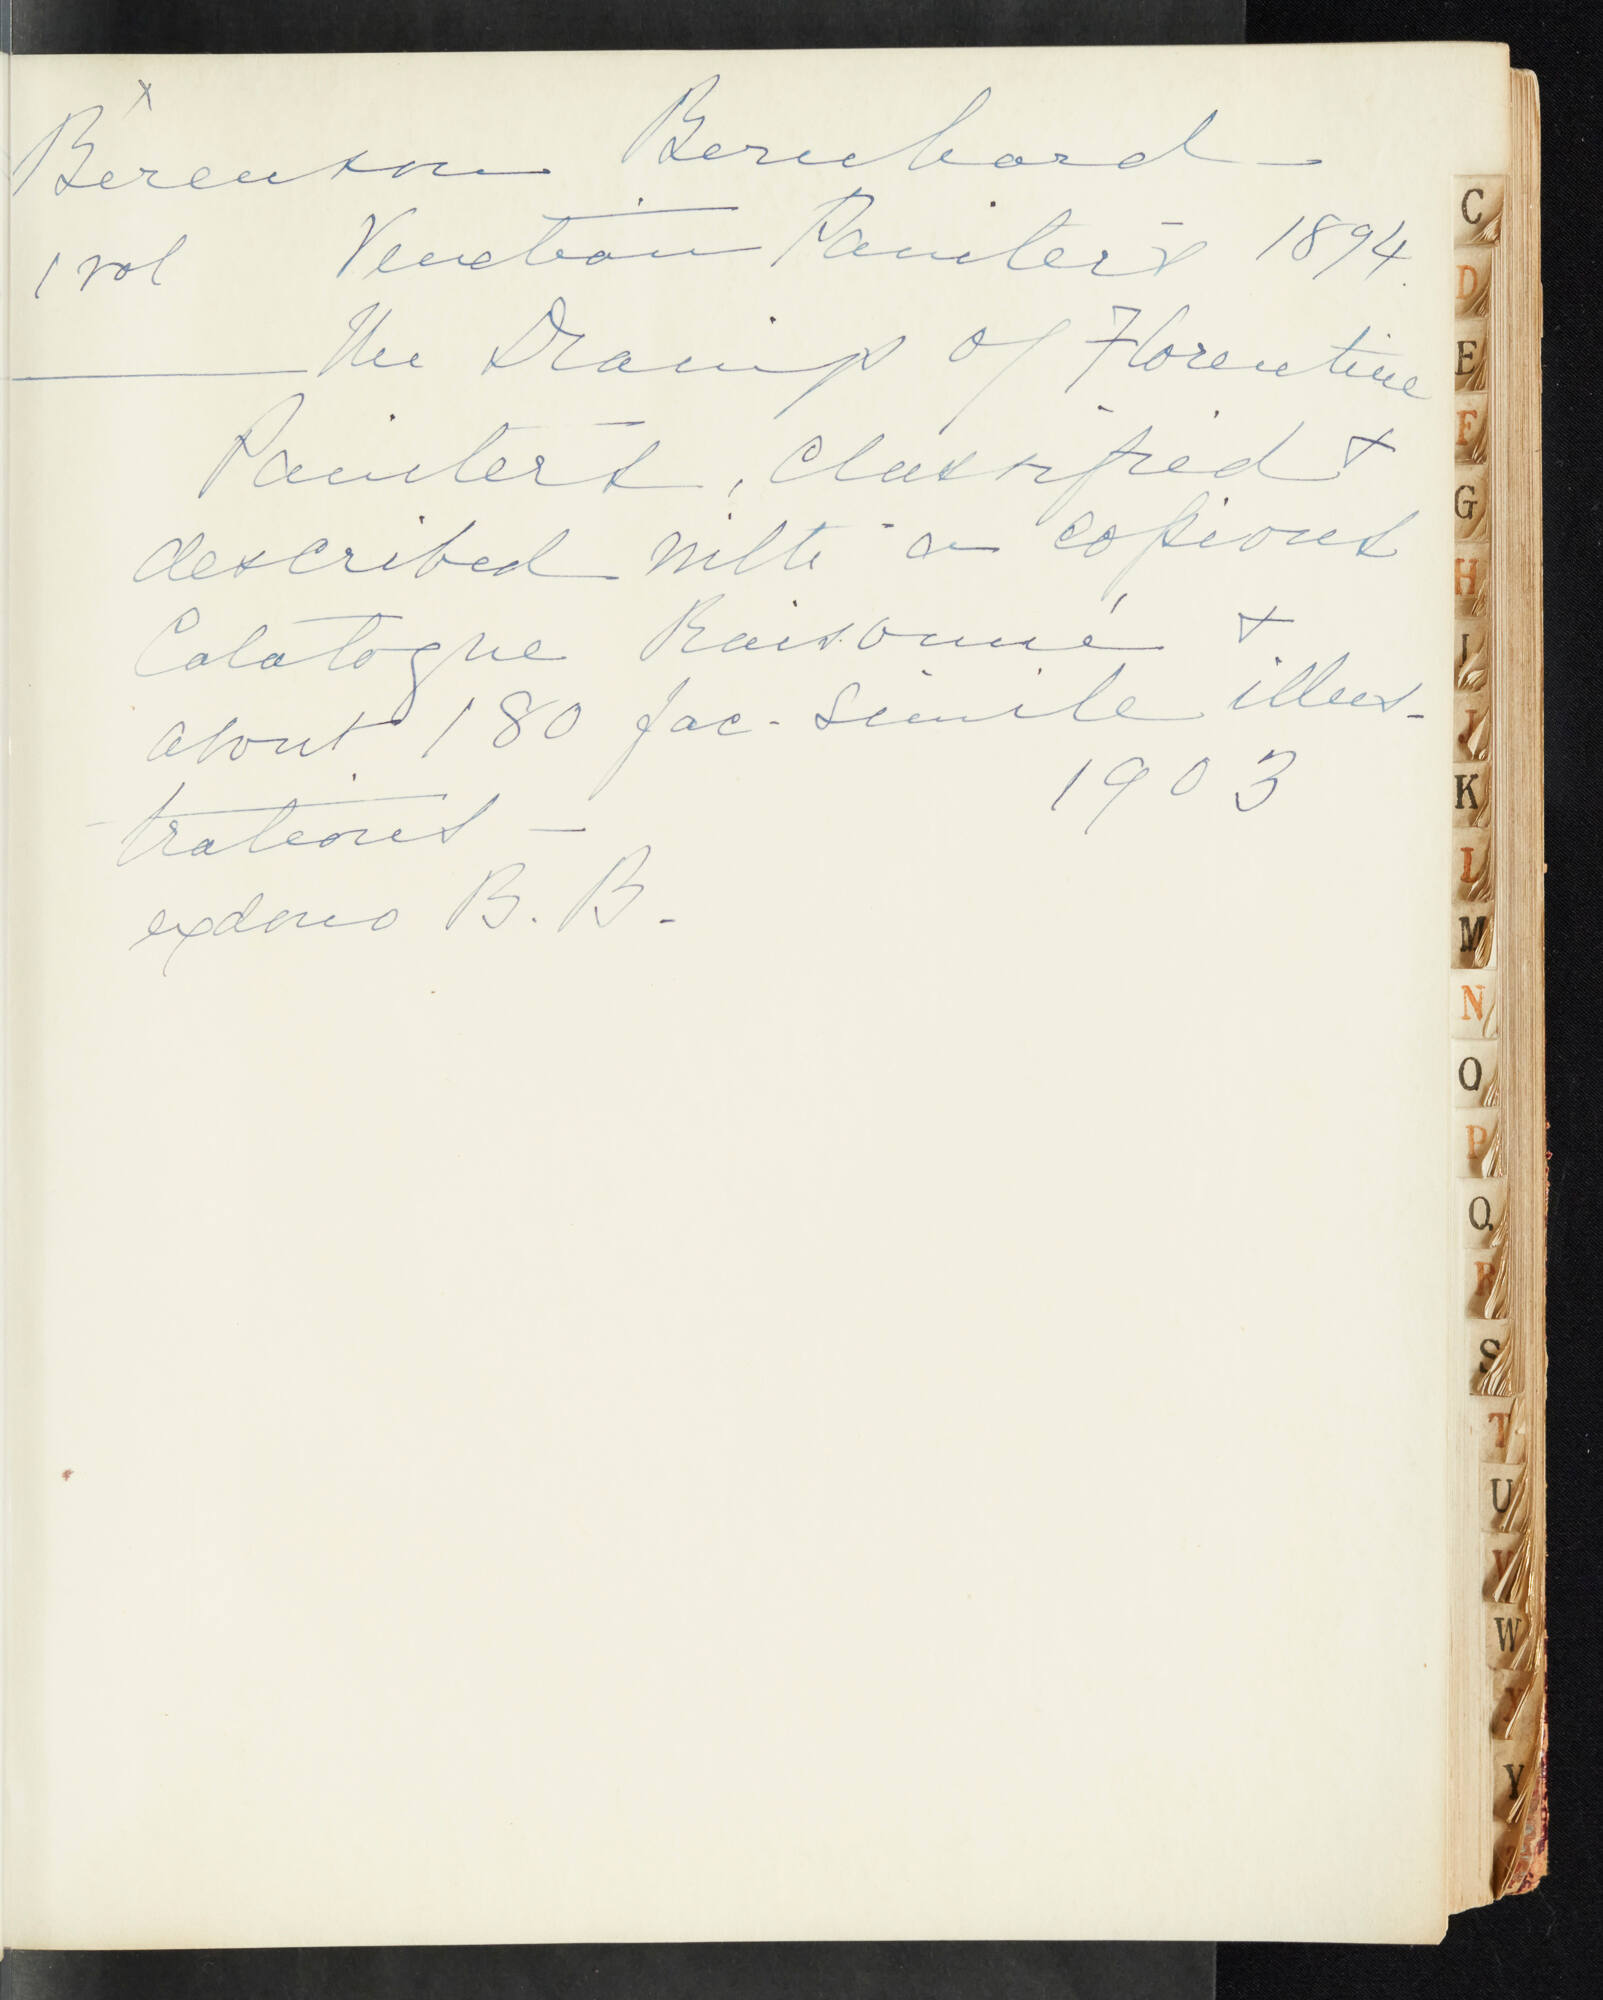 x
Berenson Bernhard –
1 vol Venetian Painters 1894.
——— The Drawings of Florentine
Painters, Classified &
described with a copious
Catalogue Raisonné &
about 180 fac-simile illus-
trations – 1903
ex dono B. B.
C
D
E
F
G
H
I
J
K
L
M
N
O
P
Q
R
S
T
U
V
W
X
Y